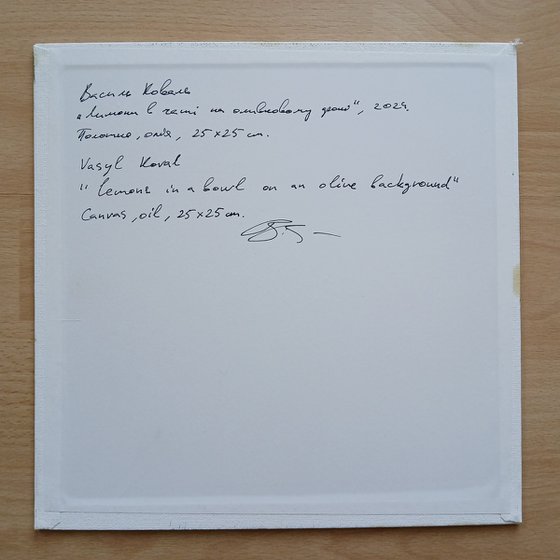 Василь Коваль
„Лимони в чаші на оливковому фоні“, 2024.
Полотно, олія, 25×25 см.
Vasyl Koval
" lemons in a bowl on an olive background"
Canvas, oil, 25×25 cm.